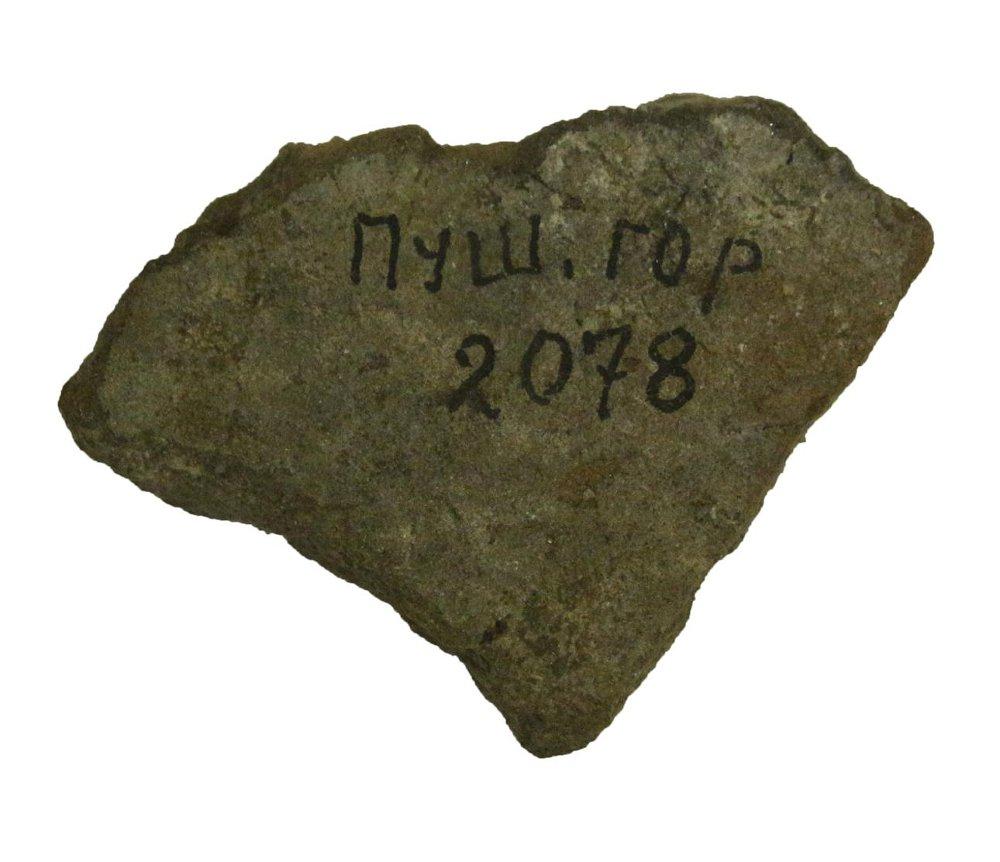 Пуш. гор
2078